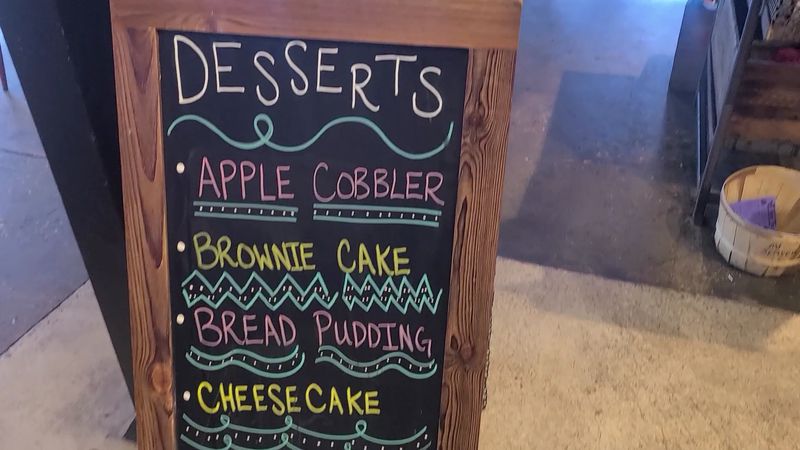 DESSERTS
APPLE COBBLER
BROWNIE CAKE
BREAD PUDDING
CHEESECAKE